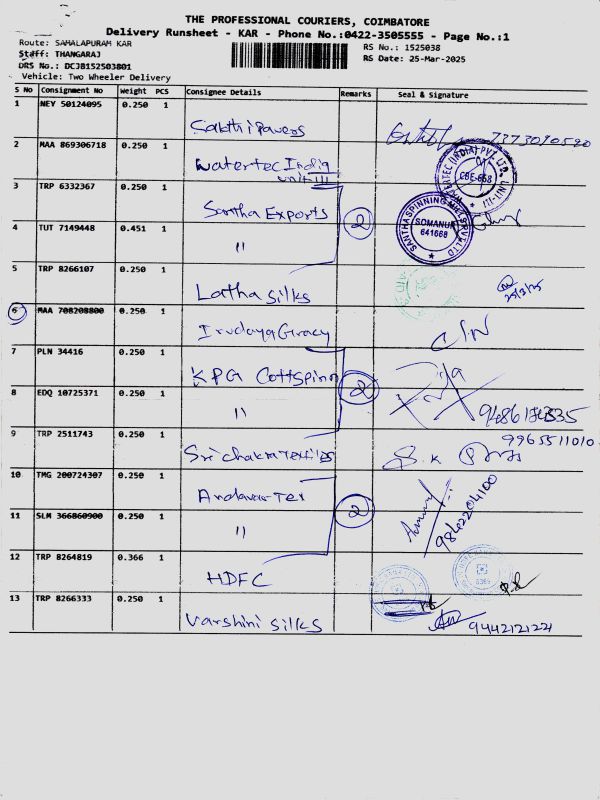 THE PROFESSIONAL COURIERS, COIMBATORE
Delivery Runsheet - KAR - Phone No.:0422-3505555 - Page No.:1
Route: SAMALAPURAM KAR
RS No.: 1525038
Staff: THANGARAJ
RS Date: 25-Mar-2025
DRS No.: DCJB152503801
Vehicle: Two Wheeler Delivery
S No Consignment No Weight PCS Consignee Details Remarks Seal & Signature
1 NEY 50124095 0.250 1
2 MAA 869306718 0.250 1 Watertec India Unit III
3 TRP 6332367 0.250 1 Santha Exports 2
4 TUT 7149448 0.451 1 "
SANTHA SPINNING MILLS PVT LTD
SOMANUR
641668
5 TRP 8266107 0.250 1 Latha Silks 25/3/25
6 MAA 708208800 0.250 1 C/N
7 PLN 34416 0.250 1 KPG Cottspinn 2
8 EDQ 10725371 0.250 1 "
9 TRP 2511743 0.250 1 Sri chakra Textiles 9965511010
10 TMG 200724307 0.250 1 2 9842204100
11 SLM 366860900 0.250 1 "
12 TRP 8264819 0.366 1 HDFC
13 TRP 8266333 0.250 1 Varshini Silks